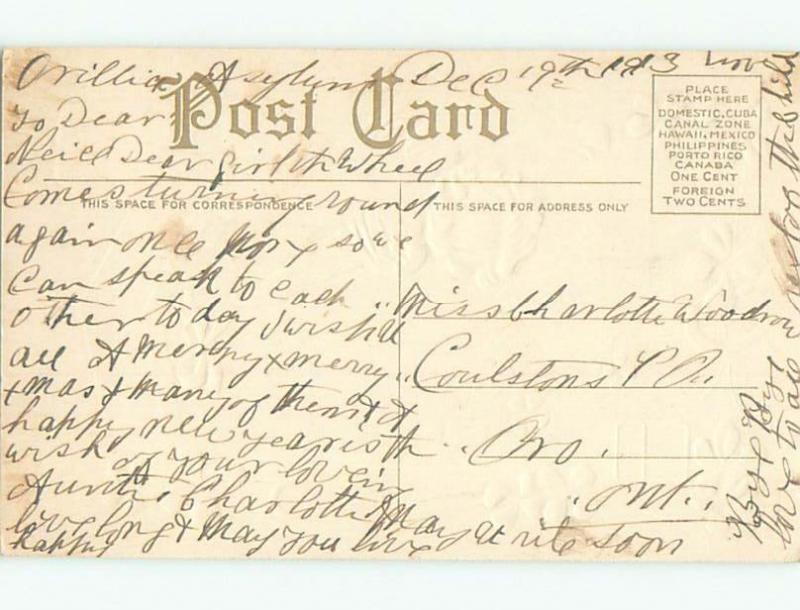 Orillia Asylum Dec 19th 1913
Post Card
To Dear
Neice Dear girl th Wheel
Comes turning round
THIS SPACE FOR CORRESPONDENCE
THIS SPACE FOR ADDRESS ONLY
PLACE
STAMP HERE
DOMESTIC, CUBA
CANAL ZONE
HAWAII, MEXICO
PHILIPPINES
PORTO RICO
CANADA
ONE CENT
FOREIGN
TWO CENTS
again once more so we
Can speak to each
other to day I wish U
all A Merry & merry
xmas & many of them & A
happy new year is th
wish of your lovein
Aunt Charlotte May
live long & May you live
happy
write soon
Miss Charlotte Woodrow
Coulstons P O.
Oro.
ont.
Bye Bye
love to all